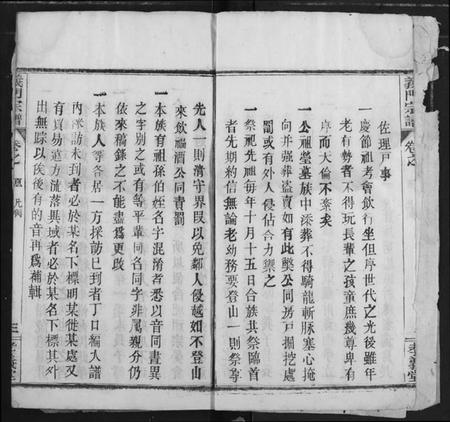 義門宗譜
卷之一
孝義堂
佐理戶事
一慶節祖考會飲行坐但序世代之先後雖年
老有勢者不得玩長輩之孩童庶幾尊卑有
序而大倫不紊矣
一公祖塋墓族中添葬不得騎龍斬脈塞心掩
向并強葬盜賣如有此獘公同房戶掘挖處
罰或有外人侵佔合力禦之
一祭祀先祖每年十月十五日合族其祭臨首
者先期約信無論老幼務要登山一則祭尊
先人一則清守界限以免鄰人侵越如不登山
來飲福酒公同責罰
一本族有祖孫伯姪名字混淆者悉以音同畫異
之字別之或有等平輩同名同字非屬親分仍
依來稿錄之不能盡為更改
一本族人等各居一方採訪已到者丁口編入譜
內採訪未到者必於某名下標明某徙某處又
有貿易遠方流落異域者必於某名下標其外
出無踪以俟後有的音再為補輯
義門宗譜
卷之一
凡例
三
孝義堂